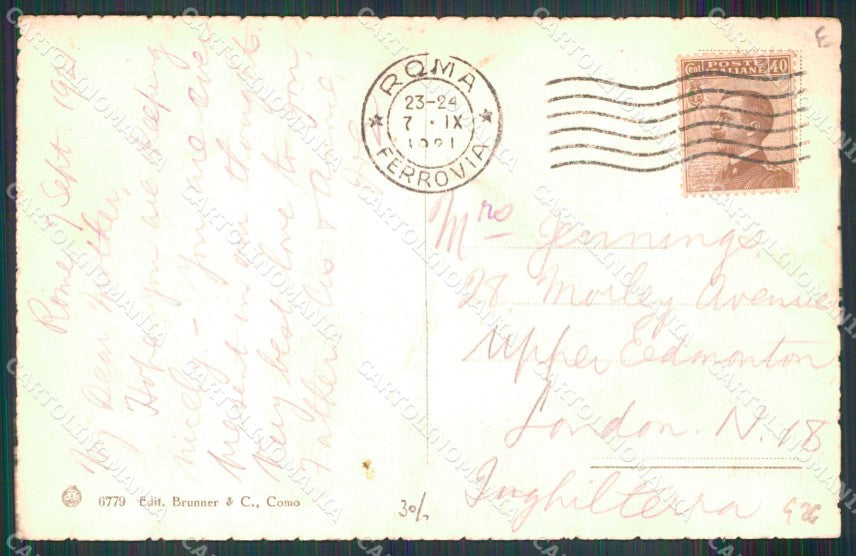 Rome 7 Sept 1921
My dear Mother,
Hope you are keeping
nicely – you are ever
present in our thoughts
Very best love to you,
Father, Lis & Annie
ROMA
23-24
7 · IX
1921
FERROVIA
POSTE
ITALIANE
Cent 40
Mrs Jennings
28 Morley Avenue
Upper Edmonton
London. N. 18
Inghilterra
6779 Edit. Brunner & C., Como
30/.
CARTOLINOMANIA